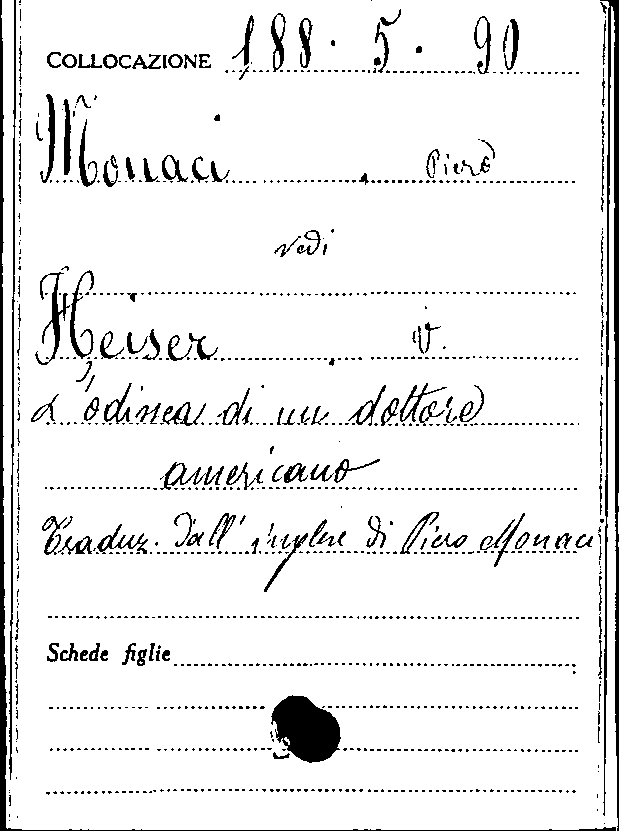 COLLOCAZIONE 188. 5. 90
Monaci, Piero
vedi
Heiser, V.
L'odissea di un dottore
americano
Traduz. dall'inglese di Piero Monaci
Schede figlie